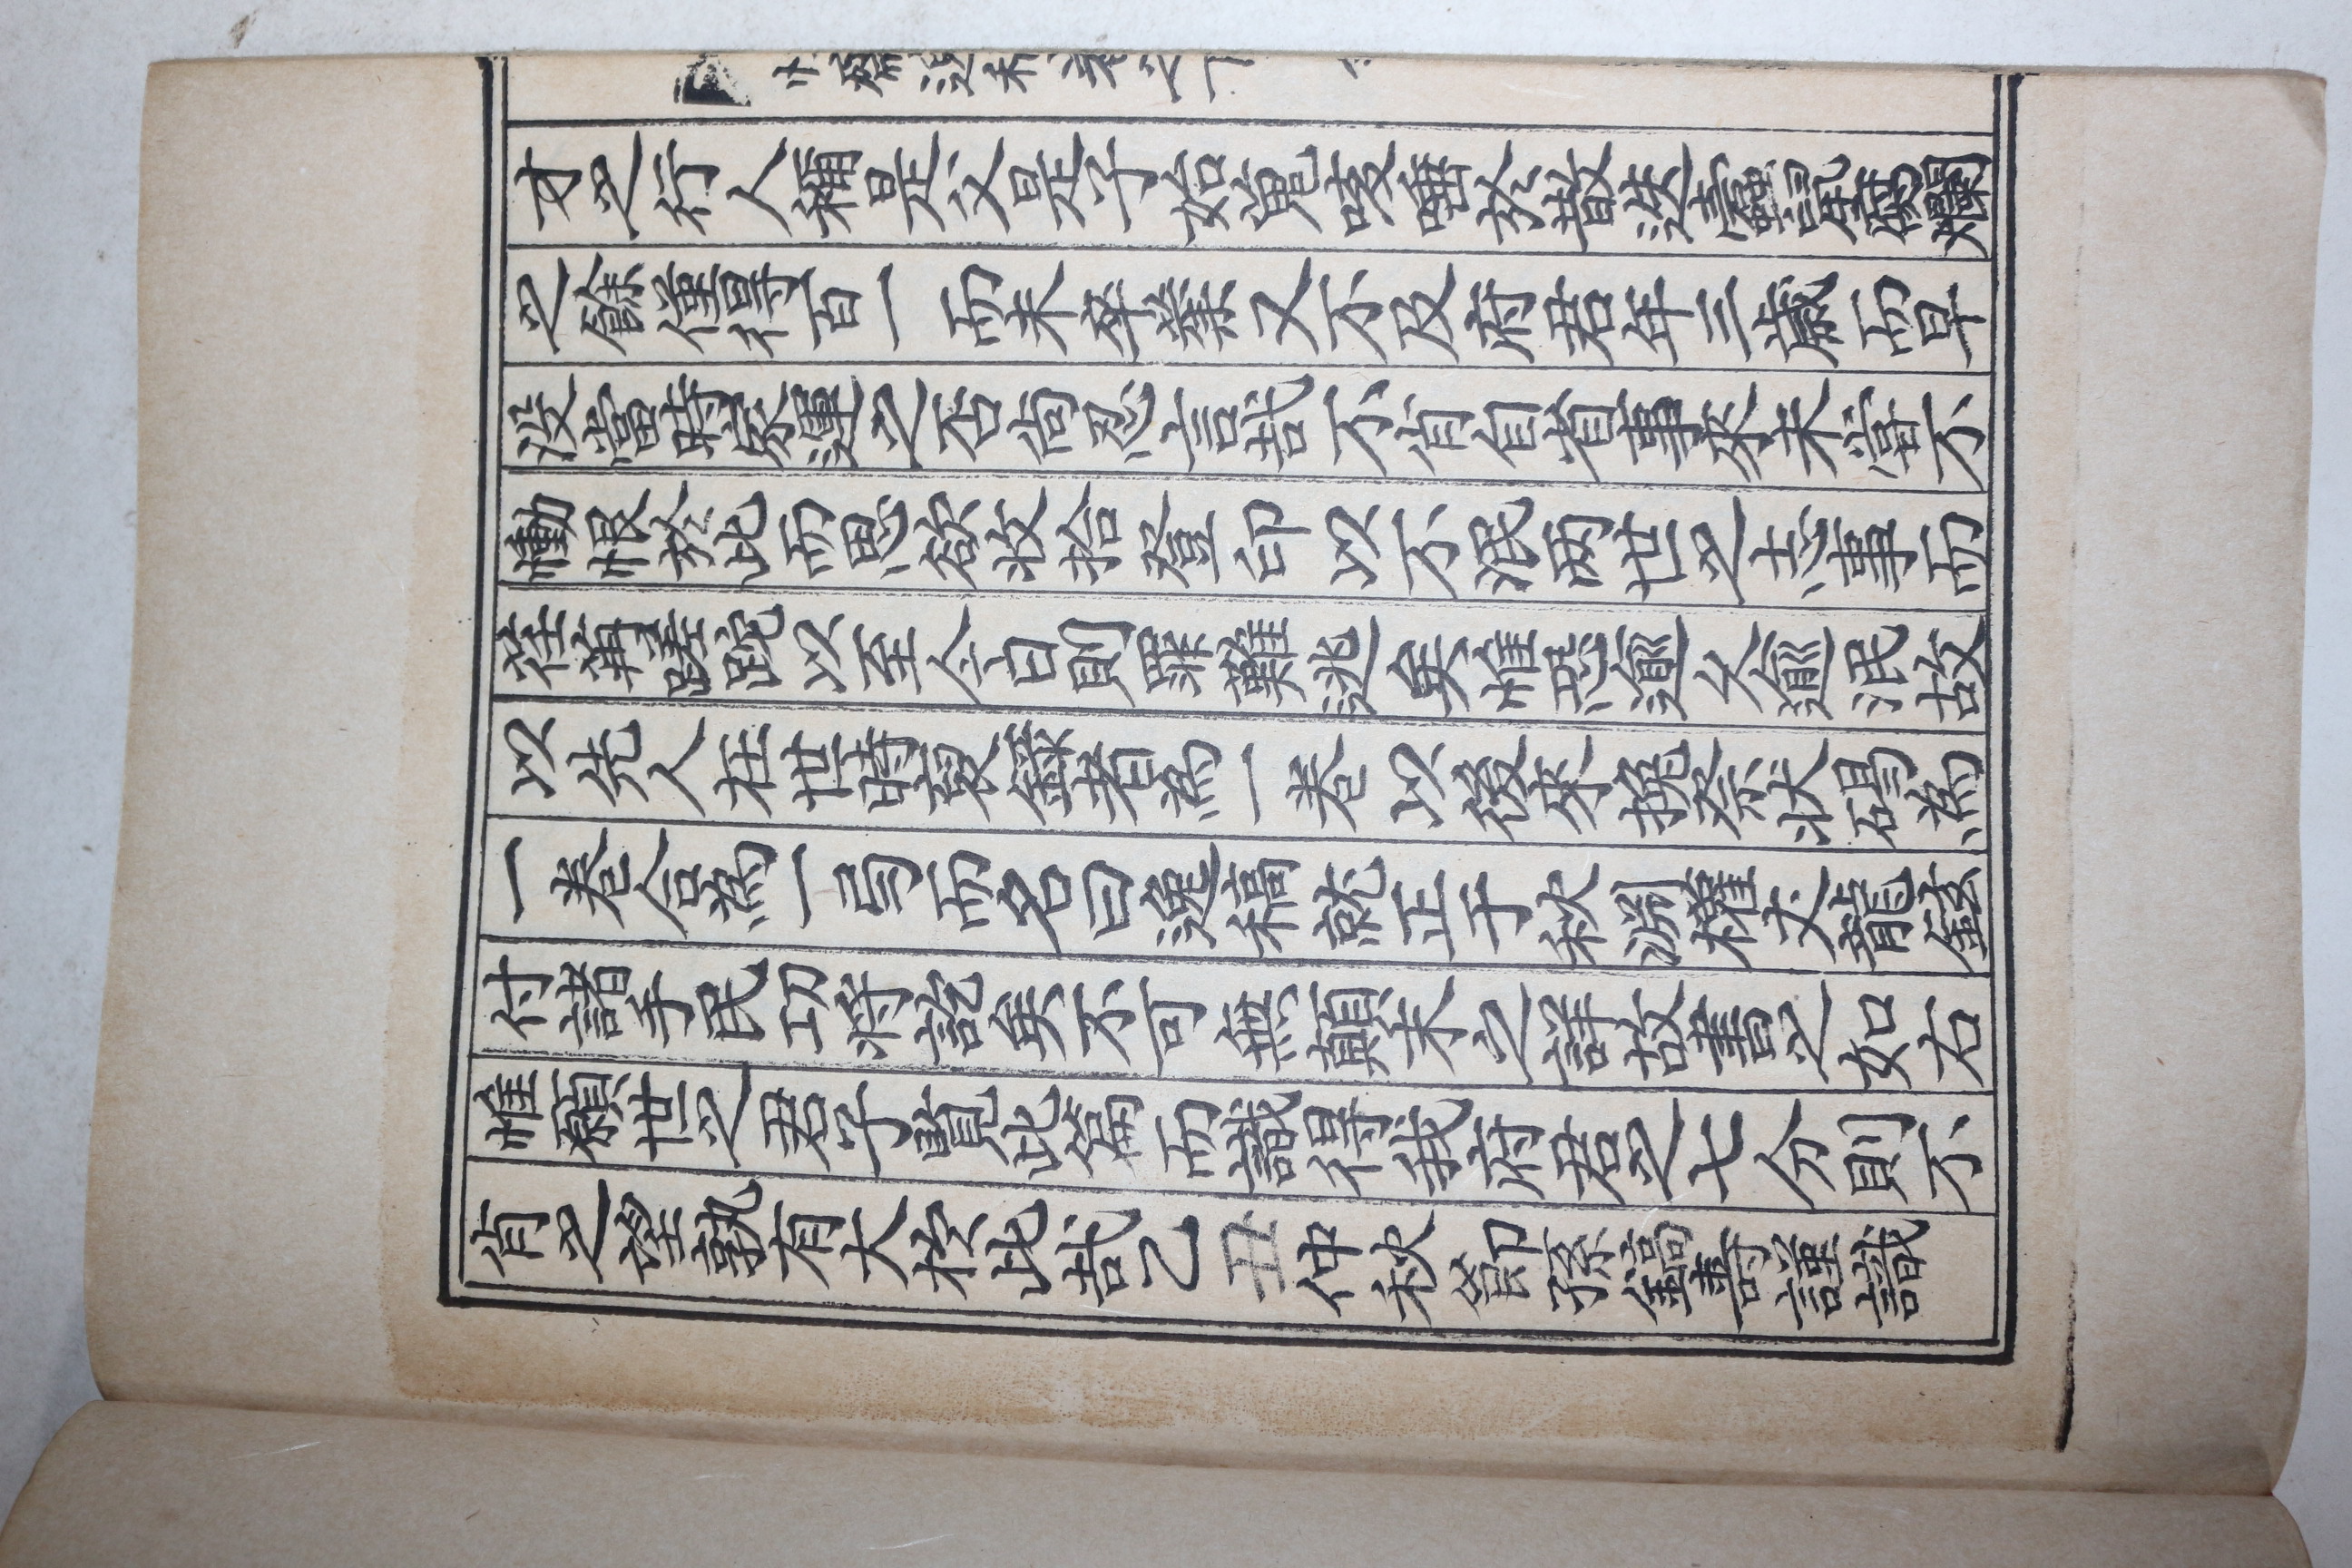 才之行人稱是父是子始蒐唛唾於散迭蠧鼠腐爛
之餘僅得百一而未卒業又不及府君年三歲而早
没當時家運之否尙忍言哉不肖自省事來未嘗不
慟恨於此而思欲收拾登印以不泯两世之志事而
荏苒蹉跎以至今白則罪難逃矣惟恐逾久逾泯故
以先人在世時裒錄者為一卷以後來挽祭狀碣為
一卷合為一弓而名曰逸稿就正于秋淵權丈龍鉉
付諸手民功将訖矣不可無顛末之詳故書之如右
惟願世之君子覧此篇而識得我府君之七分則不
肖之望孰有大於此哉乙丑仲秋節孫鎬壽謹識
齋逸稿卷之下